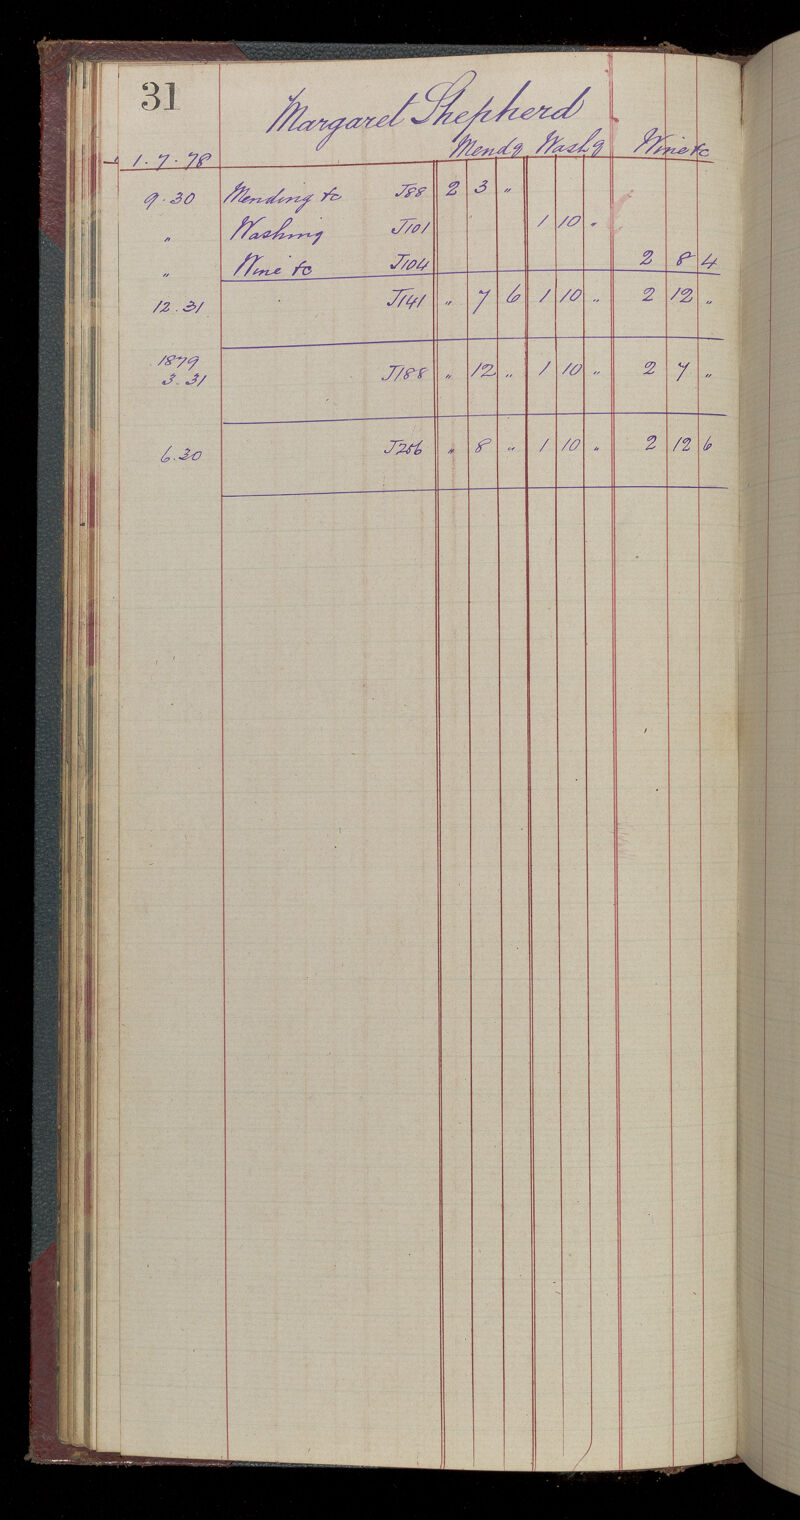 31
Margaret Shepherd
Mendg Washg Wine &c
1.7.78
9.30 Mending &c J88 2 3 "
" Washing J101 1 10 "
" Wine &c J104 2 8 4
12.31 J141 " 7 6 1 10 " 2 12 "
1879
3.31 J188 " 12 " 1 10 " 2 7 "
6.30 J256 " 8 " 1 10 " 2 12 6